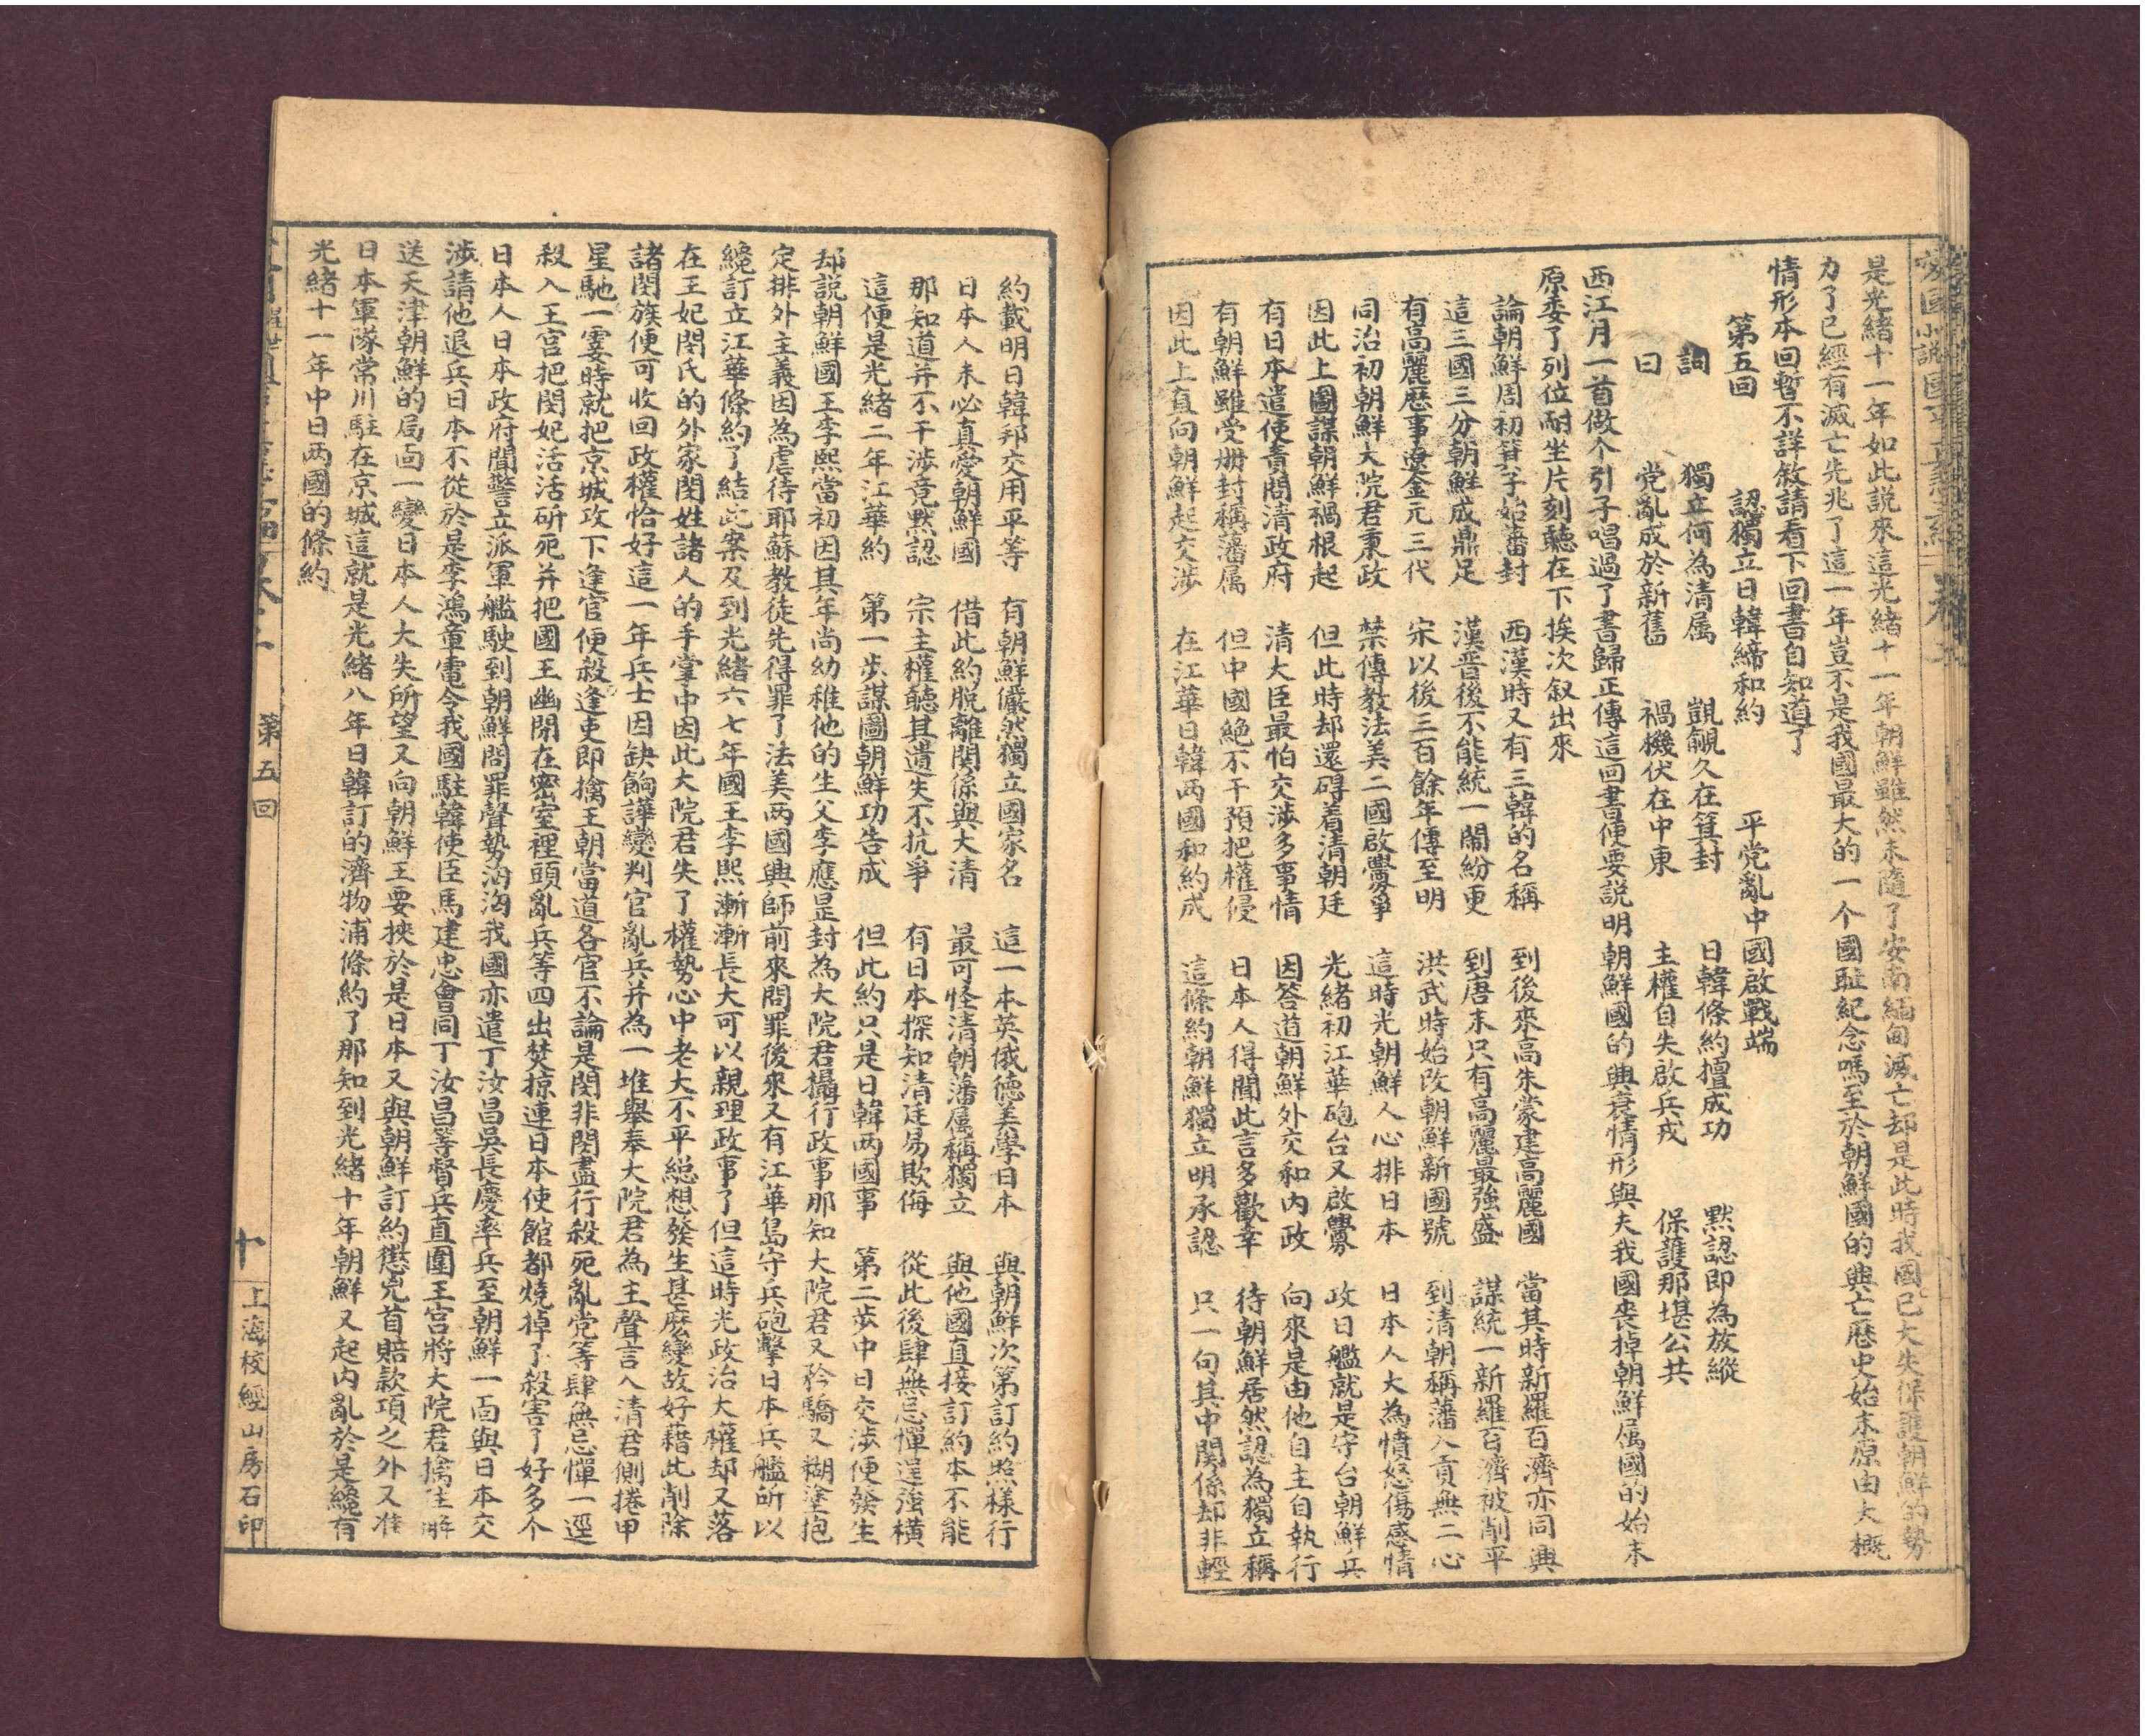 是光緒十一年如此説來這光緒十一年朝鮮雖然未隨了安南緬甸滅亡却是此時我國已大失保護朝鮮的勢
力了已經有滅亡先兆了這一年豈不是我國最大的一个國耻紀念嗎至於朝鮮國的興亡歷史始末原由大概
情形本回暫不詳敘請看下回書自知道了
第五回　認獨立日韓締和約　平党亂中國啟戰端
詞　獨立何為清属　覬覦久在箕封　日韓條約擅成功　黙認即為放縱
曰　党亂成於新舊　禍機伏在中東　主權自失啟兵戎　保護那堪公共
西江月一首做个引子唱過了書歸正傳這回書便要説明朝鮮國的興衰情形與夫我國喪掉朝鮮属國的始末
原委了列位耐坐片刻聽在下挨次叙出來
論朝鮮周初箕子始藩封　西漢時又有三韓的名稱　到後來高朱蒙建高麗國　當其時新羅百濟亦同興
這三國三分朝鮮成鼎足　漢晋後不能統一鬧紛更　到唐末只有高麗最強盛　謀統一新羅百濟被削平
有高麗歷事遼金元三代　宋以後三百餘年傳至明　洪武時始改朝鮮新國號　到清朝稱藩入貢無二心
同治初朝鮮大院君秉政　禁傳教法美二國啟釁爭　這時光朝鮮人心排日本　日本人大為憤怒傷感情
因此上圖謀朝鮮禍根起　但此時却還碍着清朝廷　光緒初江華砲台又啟釁　攻日艦就是守台朝鮮兵
有日本遣使責問清政府　清大臣最怕交涉多事情　因答道朝鮮外交和内政　向來是由他自主自執行
有朝鮮雖受册封稱藩属　但中國絶不干預把權侵　日本人得聞此言多歡幸　待朝鮮居然認為獨立稱
因此上直向朝鮮起交涉　在江華日韓两國和約成　這條約朝鮮獨立明承認　只一句其中関係却非輕
約載明日韓邦交用平等　有朝鮮儼然獨立國家名　這一本英俄德美學日本　與朝鮮次第訂約照樣行
日本人未必真愛朝鮮國　借此約脱離関係與大清　最可怪清朝藩属稱獨立　與他國直接訂約本不能
那知道并不干渉竟黙認　宗主權聽其遺失不抗爭　有日本探知清廷易欺侮　從此後肆無忌憚逞強横
這便是光緒二年江華約　第一步謀圖朝鮮功告成　但此約只是日韓两國事　第二步中日交渉便發生
却説朝鮮國王李熙當初因其年尚幼稚他的生父李應昰封為大院君攝行政事那知大院君又矜驕又糊塗抱
定排外主義因為虐待耶蘇教徒先得罪了法美两國興師前來問罪後來又有江華島守兵砲擊日本兵艦所以
纔訂立江華條約了結此案及到光緒六七年國王李熙漸漸長大可以親理政事了但這時光政治大權却又落
在王妃閔氏的外家閔姓諸人的手掌中因此大院君失了權勢心中老大不平総想發生甚麼變故好藉此削除
諸閔族便可收回政權恰好這一年兵士因缺餉譁變判官亂兵并為一堆舉奉大院君為主聲言入清君側捲甲
星馳一霎時就把京城攻下逢官便殺逢吏即擒王朝當道各官不論是閔非閔盡行殺死亂党等肆無忌憚一逕
殺入王宮把閔妃活活斫死并把國王幽閉在密室裡頭亂兵等四出焚掠連日本使館都燒掉了殺害了好多个
日本人日本政府聞警立派軍艦駛到朝鮮問罪聲勢汹汹我國亦遣丁汝昌吳長慶率兵至朝鮮一面與日本交
渉請他退兵日本不從於是李鴻章電令我國駐韓使臣馬建忠會同丁汝昌等督兵直圍王宮將大院君擒住解
送天津朝鮮的局面一變日本人大失所望又向朝鮮王要挾於是日本又與朝鮮訂約懲兇首賠款項之外又准
日本軍隊常川駐在京城這就是光緒八年日韓訂的濟物浦條約了那知到光緒十年朝鮮又起内亂於是纔有
光緒十一年中日两國的條約
第五回
十
上海校經山房石印